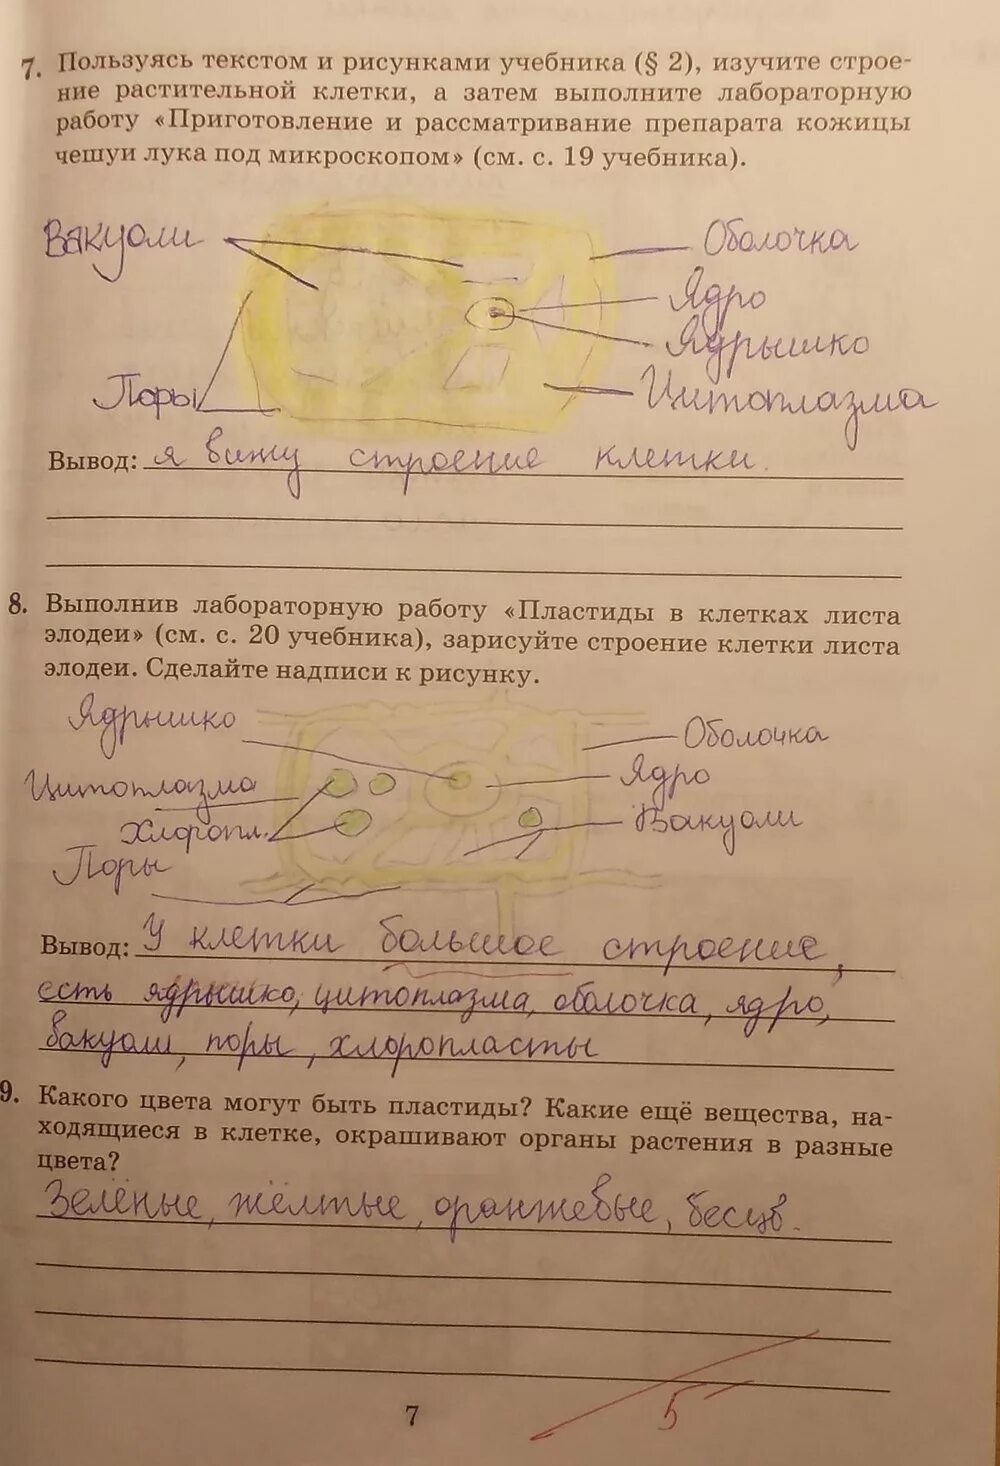 7. Пользуясь текстом и рисунками учебника (§ 2), изучите строе-
ние растительной клетки, а затем выполните лабораторную
работу «Приготовление и рассматривание препарата кожицы
чешуи лука под микроскопом» (см. с. 19 учебника).
Вакуоли
Оболочка
Ядро
Ядрышко
Поры
Цитоплазма
Вывод: я вижу строение клетки.
8. Выполнив лабораторную работу «Пластиды в клетках листа
элодеи» (см. с. 20 учебника), зарисуйте строение клетки листа
элодеи. Сделайте надписи к рисунку.
Ядрышко
Оболочка
Цитоплазма
Ядро
Хлоропл.
Вакуоли
Поры
Вывод: У клетки большое строение,
есть ядрышко, цитоплазма, оболочка, ядро,
вакуоли, поры, хлоропласты
9. Какого цвета могут быть пластиды? Какие ещё вещества, на-
ходящиеся в клетке, окрашивают органы растения в разные
цвета?
Зелёные, жёлтые, оранжевые, бесцв.
7
5